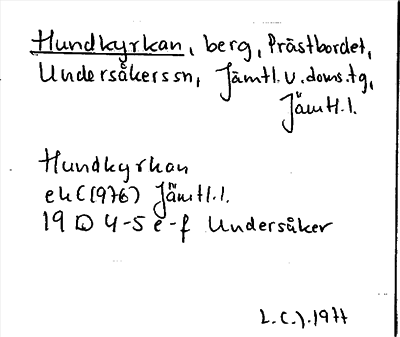 Hundkyrkan, berg, Prästbordet,
Undersåkerssn, Jämtl.v.doms.tg,
Jämtl.l.
Hundkyrkan
ekC(1976) Jämtl.l.
19 D 4-5 e-f Undersåker
L.C.J.1977